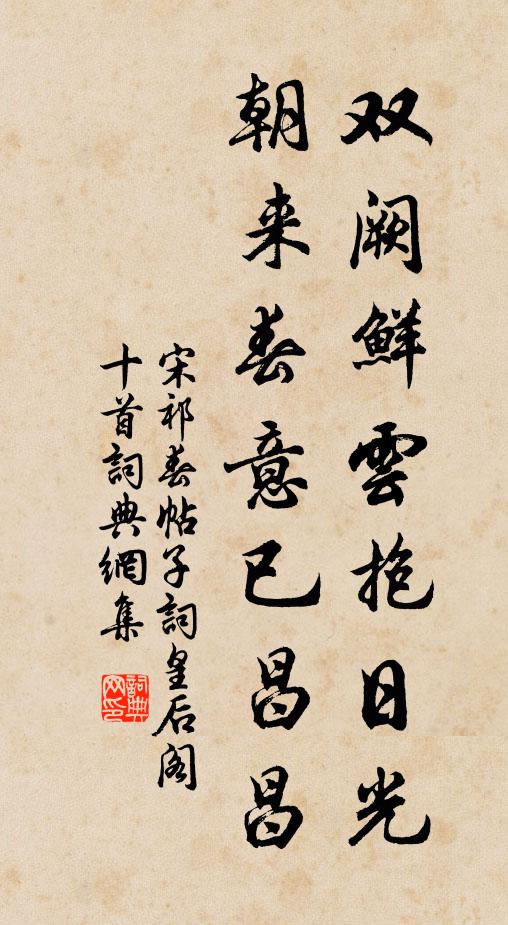 双阙鲜雲抱日光
朝来春意已昌昌
宋祁春帖子詞皇后阁
十首詞典網集
詞典
网印